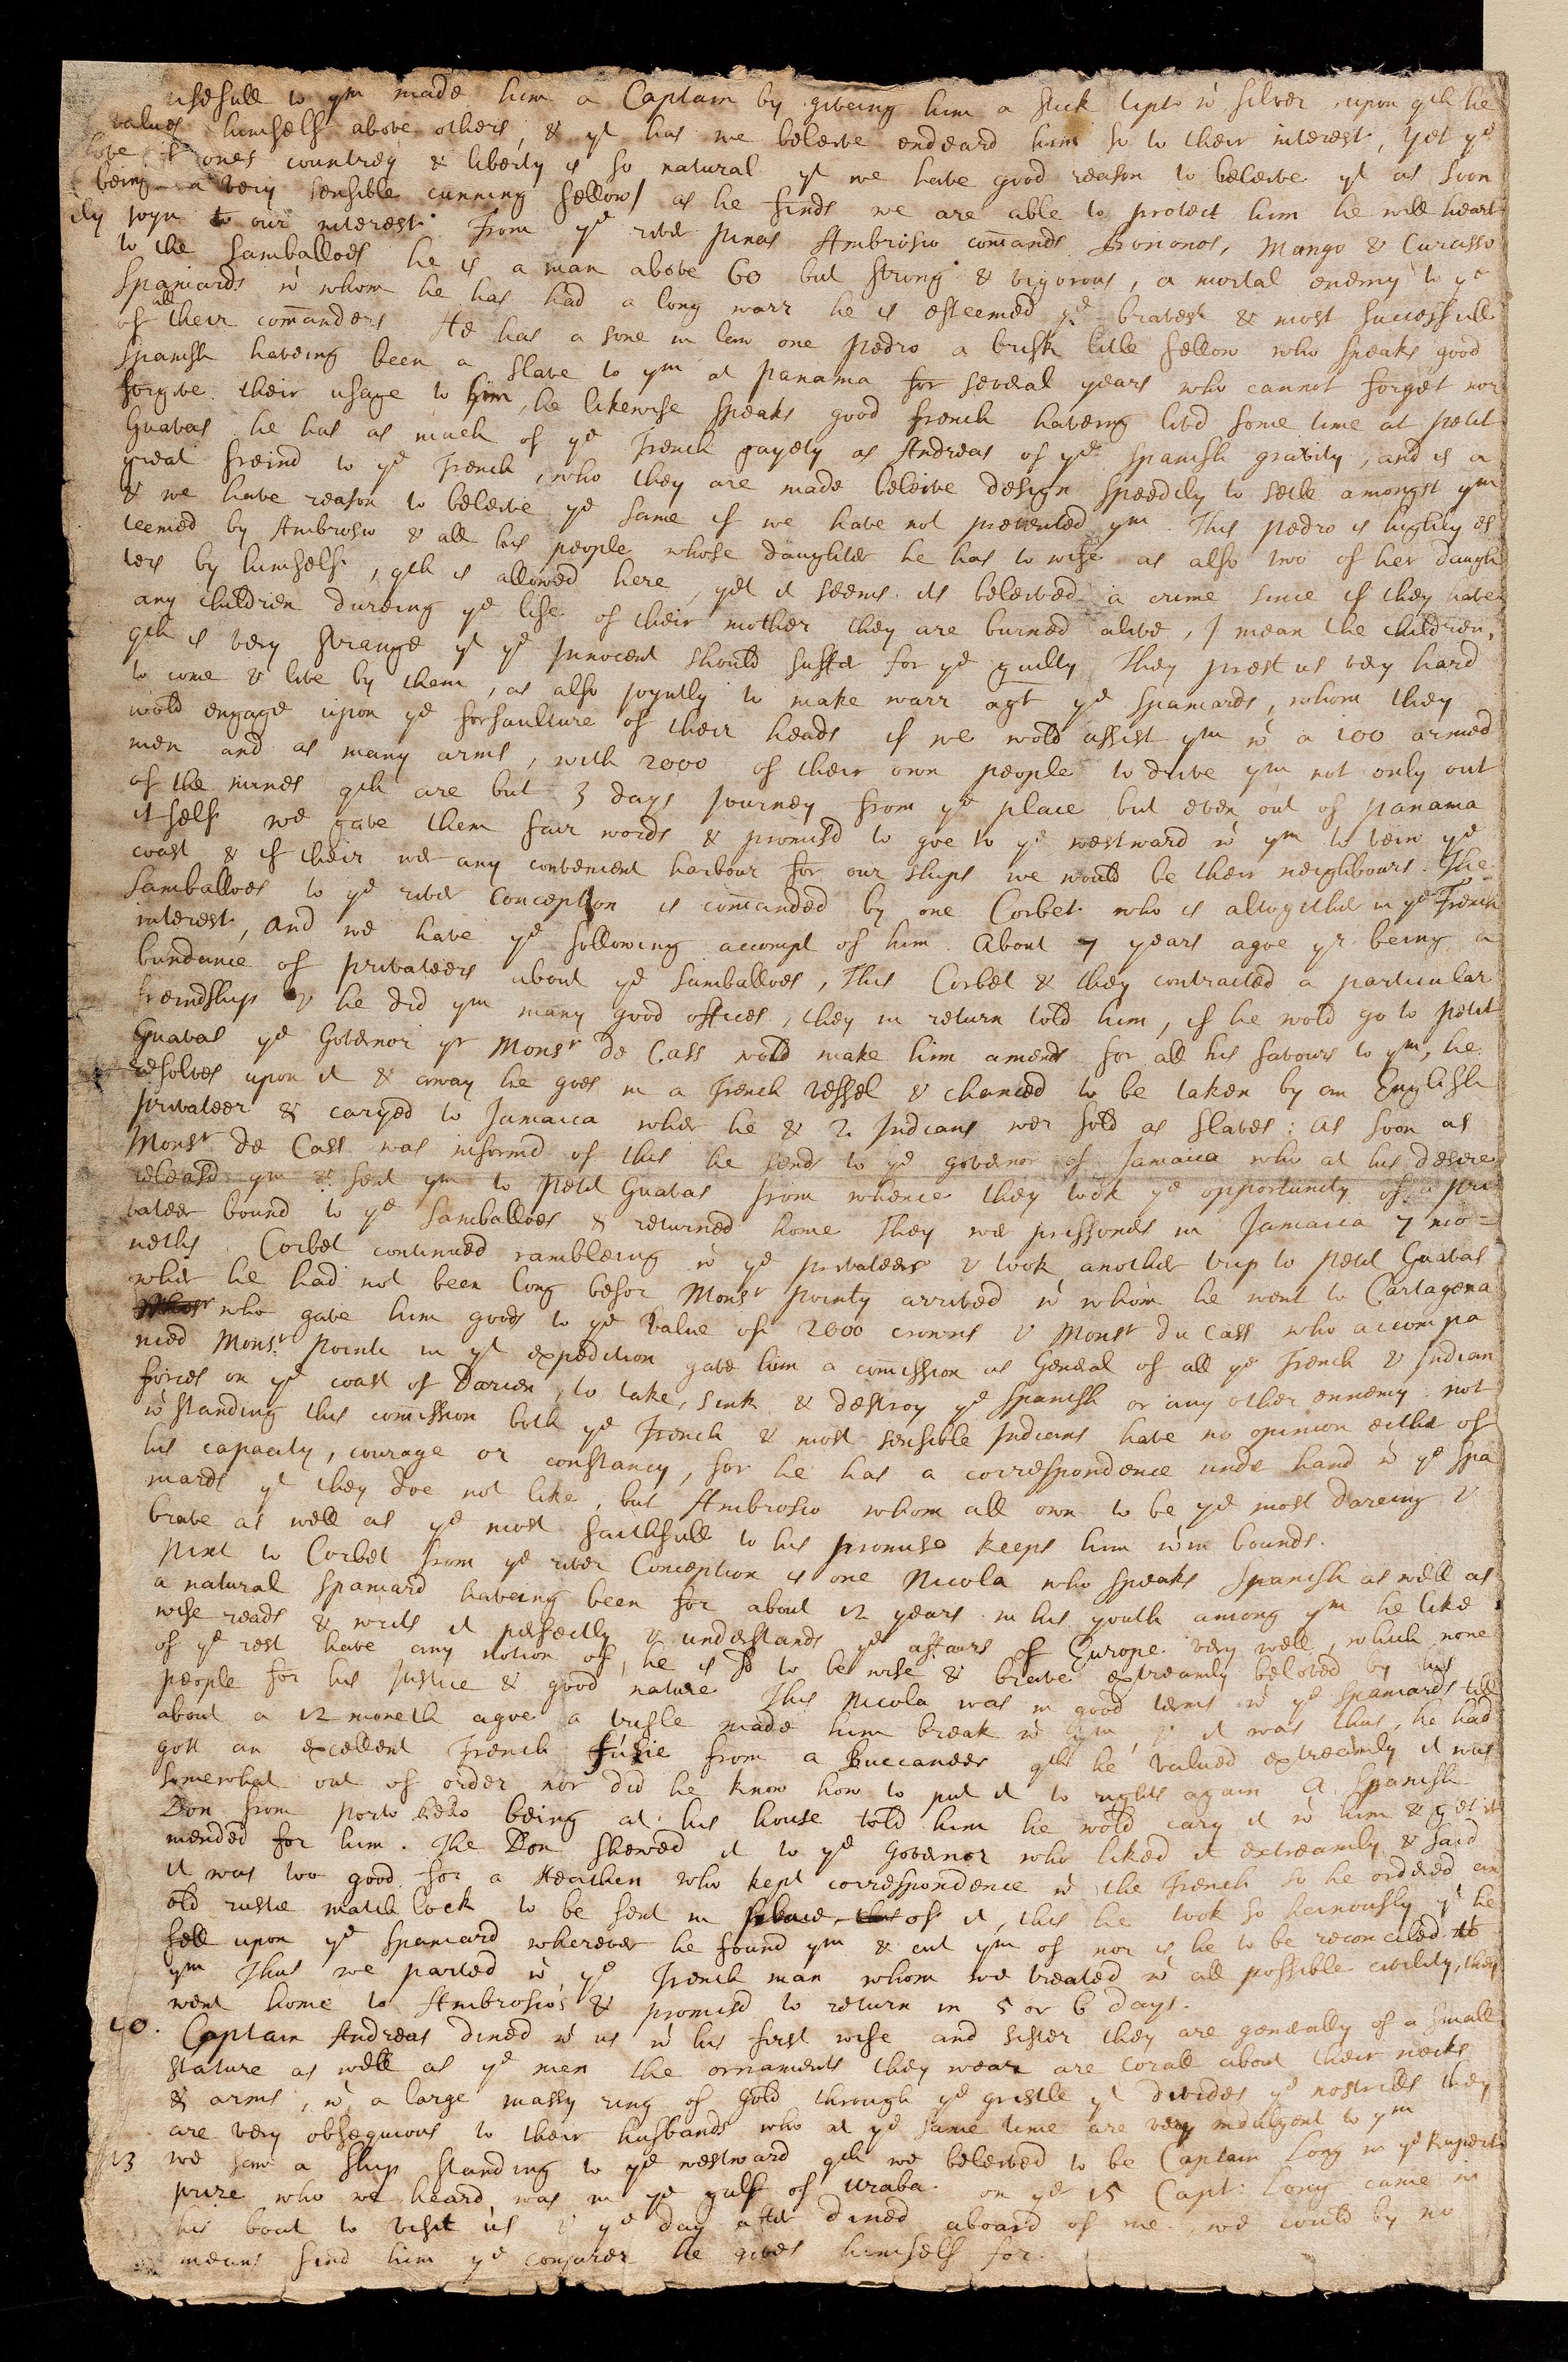 usefull to ym made him a Captain by giveing him a stick tipt w silver, upon qch he
values himself above others, & yt has we beleive endeard him so to their interest, yet ye
love of ones countrey & liberty is so natural yt we have good reason to beleive yt as soon
being a very sensible cunning fellow as he finds we are able to protect him he will heart
ily joyn to our interest. From ye river pinas Ambrosio comands Frononos, Mango & Curasso
to the Samballoes he is a man above 60 but strong & vigorous, a mortal enemy to ye
Spaniards w whom he has had a long warr he is esteemed ye bravest & most successfull
of all their comanders He has a sone in law one Pedro a brisk litle fellow who speaks good
Spanish haveing been a slave to ym at panama for several years who cannot forget nor
forgive their usage to him, he likewise speaks good french haveing livd some time at petit
Guavas he has as much of ye French gayety as Andreas of ye Spanish gravity, and is a
great freind to ye French, who they are made beleive design speedily to setle amongst ym
& we have reason to beleive ye same if we have not prevented ym. This pedro is highly es
teemed by Ambrosio & all his people whose daughter he has to wife as also two of her daugh
ters by himself, qch is allowed here, yet it seems its beleived a crime since if they have
any children dureing ye life of their mother they are burned alive, I mean the children,
qch is very strange yt ye Innocent should suffer for ye guilty They prest us very hard
to come & live by them, as also joyntly to make warr agt ye Spaniards, whom they
wold engage upon ye forfaulture of their heads if we wold assist ym w a 100 armed
men and as many arms, with 2000 of their own people to drive ym not only out
of the mines qch are but 3 days journey from ye place but even out of panama
it self we gave them fair words & promisd to goe to ye westward w ym to veiw ye
coast & if their wer any convenient harbour for our ships we would be their neighbours. The
Samballoes to ye river Conception is comanded by one Corbet who is altogither in ye French
interest, and we have ye following accompt of him. About 7 years agoe yr being a
bundance of privateers about ye Samballoes, This Corbet & they contracted a particular
freindship & he did ym many good offices, they in return told him, if he wold go to petit
Guavas ye Governor yr Monsr de Cass wold make him amends for all his favours to ym, he
resolves upon it & away he goes in a French vessel & chanced to be taken by an English
privateer & caryed to Jamaica wher he & 2 Indians wer sold as slaves: as soon as
Monsr de Cass was informd of this he sends to ye governor of Jamaica who at his desire
releasd ym & sent ym to petit Guavas from whence they took ye opportunity of a pri
vateer bound to ye Samballoes & returned home They wer prissoners in Jamaica 7 mo=
neths. Corbet continued rambleing w ye privateers & took another trip to petit Guavas
wher he had not been long befor Monsr pointy arrived w whom he went to Cartagena
who gave him goods to ye value of 2000 crowns & Monsr du Cass who accompa
nied Monsr pointi in yt expedition gave him a comission as General of all ye French & Indian
forces on ye coast of Darien, to take, sink & destroy ye Spanish or any other ennemy. not
wstanding this comission both ye French & most sensible Indians have no opinion either of
his capacity, courage or constancy, for he has a correspondence under hand w ye Spa
niards yt they doe not like, but Ambrosio whom all own to be ye most dareing &
brave as well as ye most faithfull to his promise keeps him win bounds.
Next to Corbet from ye river Conception is one Nicola who speaks Spanish as well as
a natural Spaniard haveing been for about 12 years in his youth among ym he like
wise reads & writs it perfectly & understands ye affairs of Europe very well, which none
of ye rest have any notion of, he is sd to be wise & brave extreamly beloved by his
people for his justice & good nature This Nicola was in good terms w ye Spaniards till
about a 12 moneth agoe a trifle made him break w ym, & it was thus, he had
gott an excellent French fusie from a Buccaneer qch he valued extreamly it was
somewhat out of order nor did he know how to put it to rights again a Spanish
Don from porto bello being at his house told him he wold cary it w him & get it
mended for him. The Don shewed it to ye Governor who liked it extreamly & said
it was too good for a Heathen who kept correspondence w the French so he ordered an
old rustie match lock to be sent in place of it, this he took so heinously yt he
fell upon ye Spaniard wherever he found ym & cut ym of nor is he to be reconciled to
ym Thus we parted w ye French man whom we treated w all possible civility, they
went home to Ambrosios & promisd to return in 5 or 6 days.
10. Captain Andreas dined w us w his first wife and sister they are generally of a small
stature as well as ye men the ornaments they wear are corall about their necks
& arms, w a large massy ring of gold through ye gristle yt divides ye nostrills they
are very obsequious to their husbands who at ye same time are very indulgent to ym
13 we saw a ship standing to ye westward qch we beleived to be Captain Long w ye Rupert
prize who we heard was in ye gulf of uraba. on ye 15 Capt: Long came in
his boat to visit us & ye day after dined aboard of me. we could by no
means find him ye conjurer he gives himself for.